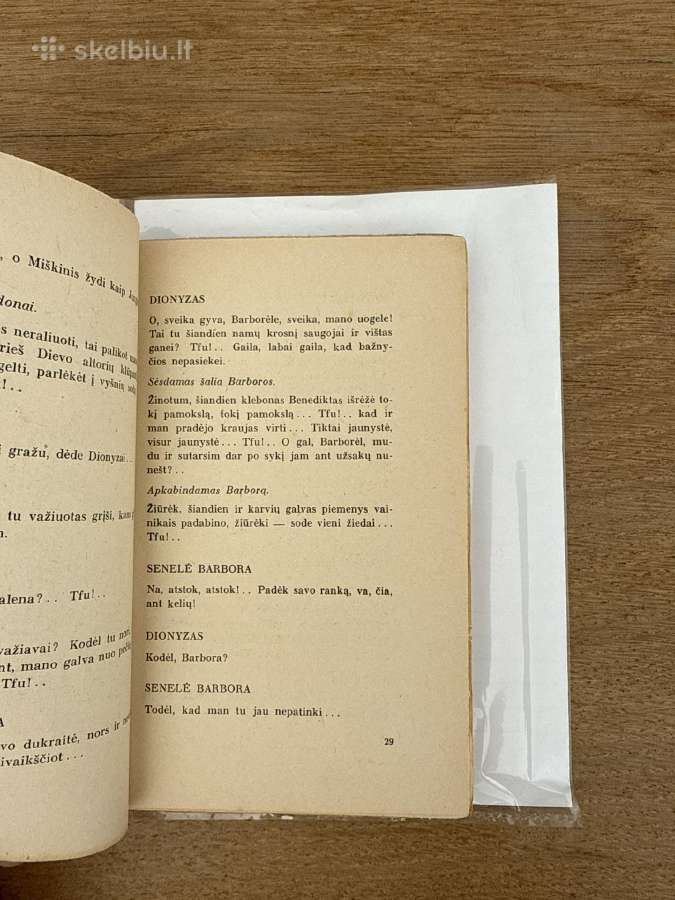 skelbiu.lt
, o Miškinis žydi kaip
donai.
s neraliuoti, tai palikot
rieš Dievo altorių
gelti, parlėkėt į vyšnių
! . .
į gražu, dėde Dionyzai . . .
tu važiuotas grįši,
n.
alena? . . Tfu! . .
važiavai? Kodėl tu
nt, mano galva nuo
Tfu! . .
A
vo dukraitė, nors ir
ivaikščiot . . .
DIONYZAS
O, sveika gyva, Barborėle, sveika, mano uogele!
Tai tu šiandien namų krosnį saugojai ir vištas
ganei? Tfu! . . Gaila, labai gaila, kad bažny-
čios nepasiekei.
Sėsdamas šalia Barboros.
Žinotum, šiandien klebonas Benediktas išrėžė to-
kį pamokslą, tokį pamokslą . . . Tfu! . . kad ir
man pradėjo kraujas virti . . . Tiktai jaunystė,
visur jaunystė . . . Tfu! . . O gal, Barborėl, mu-
du ir sutarsim dar po sykį jam ant užsakų nu-
nešt? . .
Apkabindamas Barborą.
Žiūrėk, šiandien ir karvių galvas piemenys vai-
nikais padabino, žiūrėki — sode vieni žiedai . . .
Tfu! . .
SENELĖ BARBORA
Na, atstok, atstok! . . Padėk savo ranką, va, čia,
ant kelių!
DIONYZAS
Kodėl, Barbora?
SENELĖ BARBORA
Todėl, kad man tu jau nepatinki . . .
29